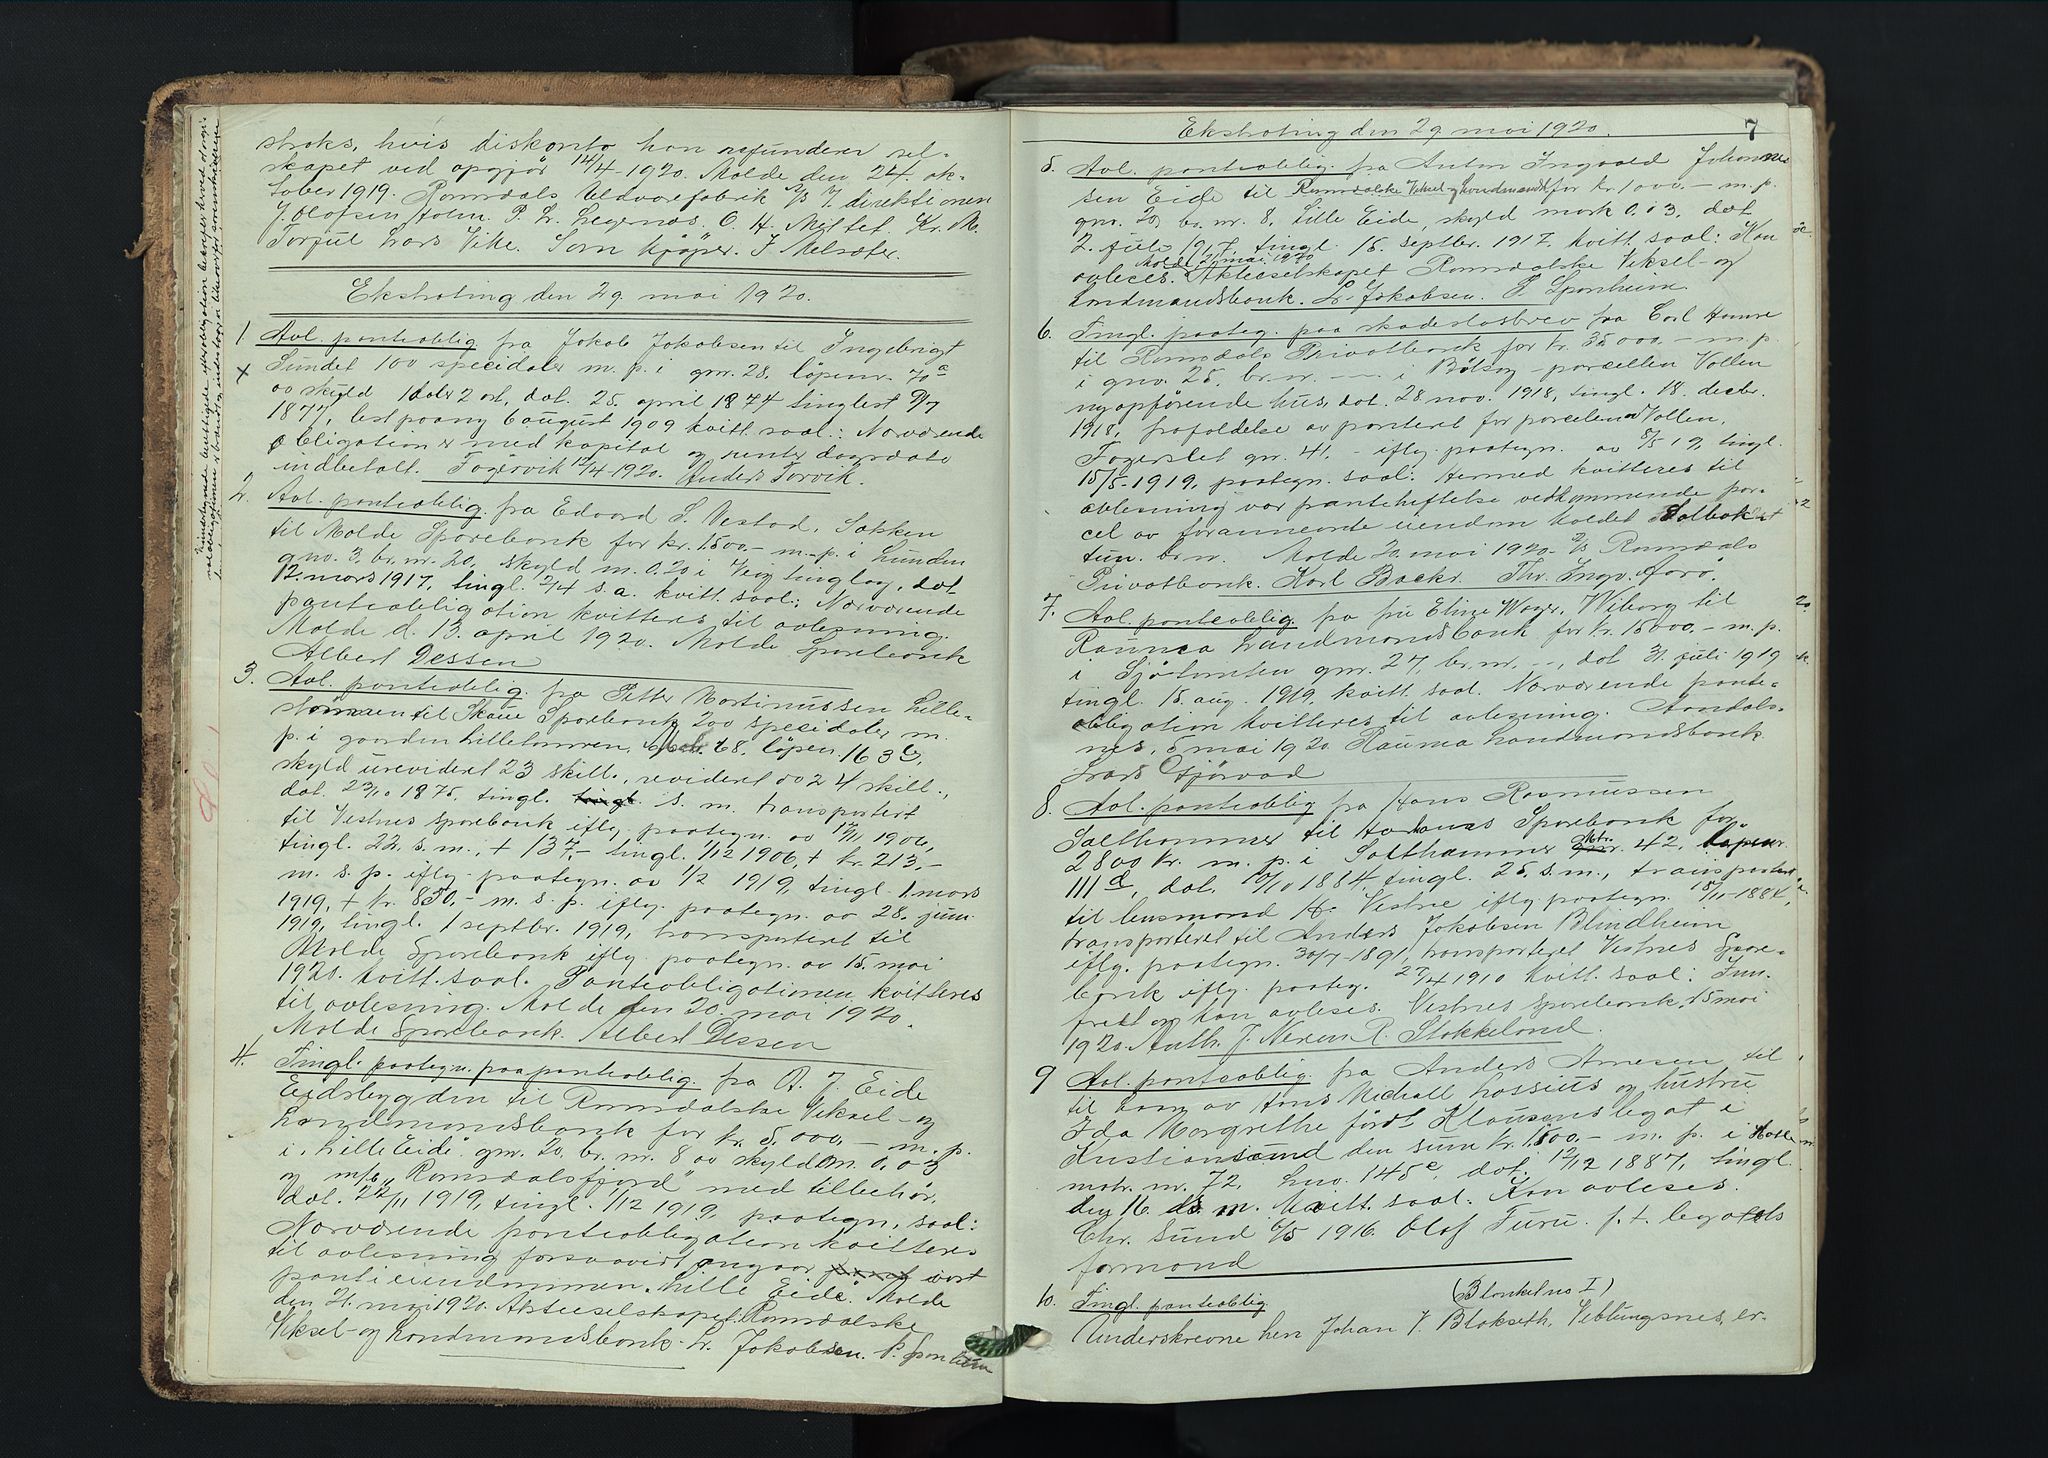 straks, hvis diskonto han refunderer sel-
skapet ved opgjør 14/4-1920. Molde den 24 ok-
tober 1919. Romsdals Uldvarefabrik A/S I direktionen
J. Olafsen Holm. P. L. Legernæs. O. H. Mittet. Kr. M.
Torful Lars Vike. Som kjøper. J Melsæter.
Ekstrating den 29. mai 1920.
1 Avl. panteoblig fra Jakob Jakobsen til Ingebrigt
x Sundet 100 specidaler m. p. i gnr. 28, løpenr. 70a
av skyld 1 daler 2 ort, dat. 25. april 1874 tinglest 9/7
1874, lest paany 6 august 1909 kvitt. saal.: Nærværende
obligation er med kapital og renter dagsdato
indbetalt. Fagervik 12/4-1920. Anders Torvik.
2. Avl. panteoblig. fra Edvard S. Vestad, Sekken
til Molde Sparebank for kr. 1500.- m. p. i Lunden
gno. 3, br. nr. 20, skyld m. 0.20 i Veø tinglag, dat
12. mars 1917, tingl. 2/4 s. a. kvitt. saal: Nærværende
panteobligation kvitteres til avlesning.
Molde d. 13. april 1920. Molde Sparebank
Albert Dessen
3. Avl. panteoblig. fra Petter Mortinussen Lille-
til Skaue Sparebank 200 spesidaler m.
p. i gaarden Lilletomren, 68. løpen. 163b,
skyld urevideret 23 skill., revideret av 24 skill.,
dat. 23/10 1875, tingl. s. m. transportert
til Vestnes Sparebank iflg. paategn. av 12/11 1906,
tingl. 22. s. m., + 137,- tingl. 1/12 1906, + kr. 213.-
m. s. p. iflg. paategn. av 1/2 1919, tingl. 1. mars
1919, + kr. 850,- m. s. p. iflg. paategn. av 28. juni
1919, tingl. 1 septbr. 1919, transporteret til
Molde Sparebank iflg. paategn. av 15. mai
1920. kvitt. saal. Panteobligationen kvitteres
til avlesning. Molde den 20. mai 1920.
Molde Sparebank. Albert Dessen
4. Tingl. paategn. paa panteoblig. fra A. J. Eide
Eidsbygden til Romsdalske Veksel- og
Landmandsbank for kr. 5.000.- m. p.
i "Lille Eide" gnr. 20, br. nr. 8 av skyld m. 0.03
og m/k "Romsdalsfjord" med tilbehør,
dat. 22/11 1919, tingl. 1/12 1919, paategn. saal:
Nærværende panteobligation kvitteres
til avlesning forsaavidt angaar vort
pant i eiendommen "Lille Eide". Molde
den 21. mai 1920. Aktieselskapet Romsdalske
Veksel- og Landmandsbank. L. Jakobsen. P. Sponheim
Ekstrating den 29 mai 1920. 7
5. Avl. panteoblig. fra Anton Ingvald Johannes
sen Eide til Romsdalske Veksel- og Landmandsb for kr. 1000.- m. p.
gnr. 20, br. nr. 8, Lille Eide, skyld mark 0.03, dat
2. juli 1917, tingl. 15. septbr. 1917. kvitt. saal: Kan
Molde 21 mai 1920
avleses. Aktieselskapet Romsdalske Veksel- og
Landmandsbank. L. Jakobsen. P. Sponheim.
6. Tingl. paateg. paa skadesløsbrev fra Carl Hamre
til Romsdals Privatbank for kr. 35000.- m. p.
i gno. 25, br. nr. — i Bolsøy - parsellen Vollen
nyopførende hus, dat. 28. nov. 1918, tingl. 18. decbr.
1918, frafaldelse av pantet for parcelen Vollen,
Fagerslet gnr. 41. - iflg. paategn. av 8/5 19, tingl.
15/5-1919, paategn. saal: Hermed kvitteres til
avlesning vor panteheftelse vedkommende par-
cel av foranneonte eiendom kaldet Solbak
tun. br. nr. Molde 20. mai 1920. A/S Romsdals
Privatbank. Karl Backe. Thr. Ingv. Aarø.
7. Avl. panteoblig. fra fru Eline Wazer. Wiborg til
Rauma Landmandsbank for kr. 15000.- m. p.
i Sjøtomten gnr. 27, br. nr. —, dat 31. juli 1919
tingl. 15. aug. 1919, kvitt. saal. Nærværende pante-
obligation kvitteres til avlesning. Aandals-
nes, 5 mai 1920. Rauma Landmandsbank
Lars Gjørvad
8. Avl. panteoblig fra Hans Rasmussen
Salthammer til Harhams Sparebank for
2800 kr. m. p. i Salthammer Mtr. 42, løpenr.
111d, dat. 1884, tingl. 25. s. m., transportert
til lensmand H. Vestre iflg. paategn. 15/11-1884,
transporteret til Anders Jakobsen Blindheim
iflg. paategn. 30/7-1891, transporteret Vestnes Spare-
bank iflg. paateg. 27/4 1910 Kvitt. saal: Inn-
friet og kan avleses. Vestnes Sparebank, 15 mai
1920. Anth. J. Nerem R. Stokkeland.
9 Avl. panteoblig. fra Anders Arnesen til
til laan av Hans Michall Lossius og hustru
Ida Margrethe født Klausens legat i
Kristiansund den sum kr. 1500.- m. p. i
matr. nr. 72, Lnr. 145c, dat. 12/12 1887, tingl.
den 16. ds. m. Kvitt. saal. Kan avleses.
Chr. Sund 6/5 1916. Olaf Furu. f. t. legatets
formand
(Blanket no I)
10. Tingl. panteoblig.
Underskrevne hen Johan J. Blakseth, Veblungsnes, er-